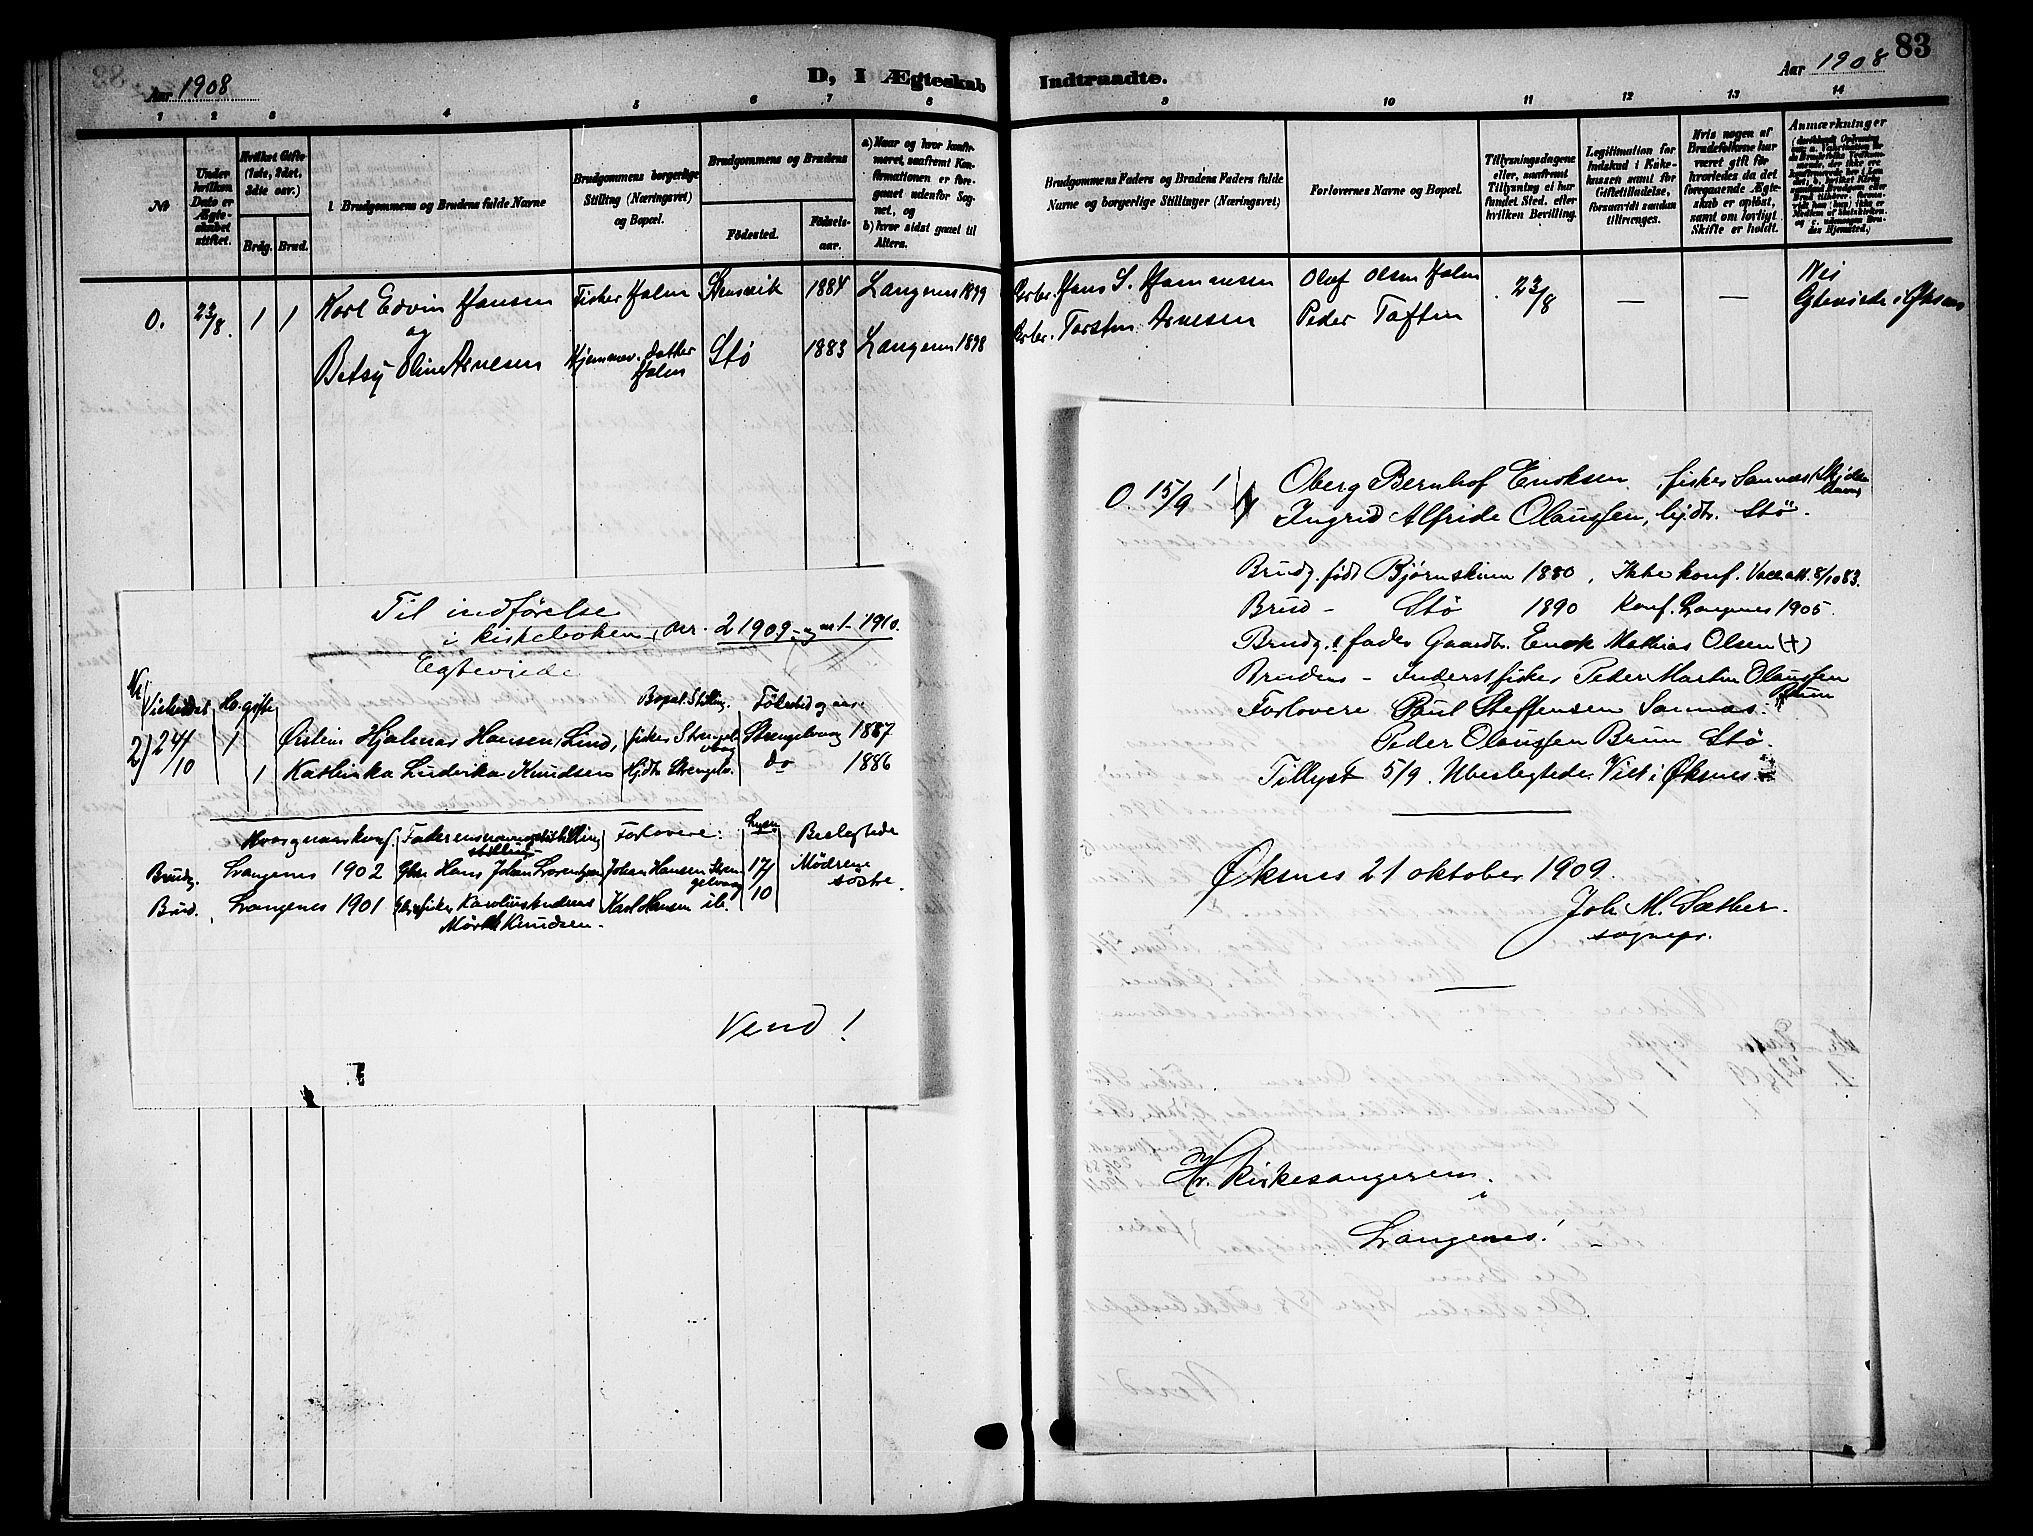 Aar 1908
D, I Ægteskab Indtraadte.
Aar 1908
83
1 2 3 4 5 6 7 8 9 10 11 12 13 14
№
Under hvilken Dato er Ægteskabet stiftet.
Hvilket Gifte (1ste, 2det, 3die osv.)
Brdg. Brud.
Brudgommens og Brudens fulde Navne
Brudgommens borgerlige Stilling (Næringsvei) og Bopæl.
Brudgommens og Brudens
Fødested. Fødselsaar.
a) Naar og hvor konfirmeret, saafremt Konfirmationen er foregaaet udenfor Sognet, og
b) hvor sidst gaaet til Alters.
Brudgommens Faders og Brudens Faders fulde Navne og borgerlige Stillinger (Næringsvei)
Forlovernes Navne og Bopæl.
Tillysningsdagene eller, saafremt Tillysning ei har fundet Sted, efter hvilken Bevilling.
Legitimation for Indskud i Enkekassen samt for Giftetilladelse, forsaavidt saadan tiltrænges.
Hvis nogen af Brudefolkene har været gift før hvorledes da det foregaaende Ægteskab er opløst, samt om lovligt Skifte er holdt.
Anmærkninger
O. 23/8. 1 1 Karl Edvin Hansen Fisker Holm 1884 Langenes 1899 Hans S. Hammesen Olaf Olsen Holm 23/8 — — Nei
og
Betsy Oline Arnesen Hjemmev. datter Holm Stø 1883 Langenes 1898 Torsten Arnesen Peder Toften Egteviede i Øksnes
Til indførelse
i kirkeboken, nr. 2 1909 og nr 1 – 1910.
Egteviede
Nr Vielsesdat Ho. gifte Bopæl. Stilling. Fødested og aar.
2) 24/10 1 Øistein Hjalmar Hansen Lind, fisker Strengelvaag Strengelvaag 1887
1 Kathinka Ludvika Knudsen Hjdtr Strengelv. do 1886
Hvor og naar konf. Faderens navn og stilling Forlovere: Lysn Beslegtede
Brudg. Langenes 1902 Gbr Hans Johan Lorentzen Johan Hansen Strengelvaag 17/10 Mødrene søstre.
Brud. Langenes 1901 fisker Karolius Andreas Mørk Knudsen. Karl Hansen ib.
Vend!
O. 15/9 1 Oberg Bernhof Enoksen, fisker Sannes
1 Ingrid Alfride Olaussen, hjdtr. Stø.
Brudg. født Bjørnskinn 1880, Ikke konf. Vacc.att. 8/10 83.
Brud – Stø 1890 Konf. Langenes 1905.
Brudg.s fader Gaardbr. Enok Mathias Olsen (+)
Brudens – Inderst fisker Peder Martin Olaussen Brun
Forlovere Paul Steffensen Sannes.
Peder Olaussen Brun Stø.
Tillyst 5/9. Ubeslegtede. Viet i Øksnes.
Øksnes 21 oktober 1909.
Joh. M. Sæther.
sognepr.
Hr. Kirkesangeren
i
Langenes!